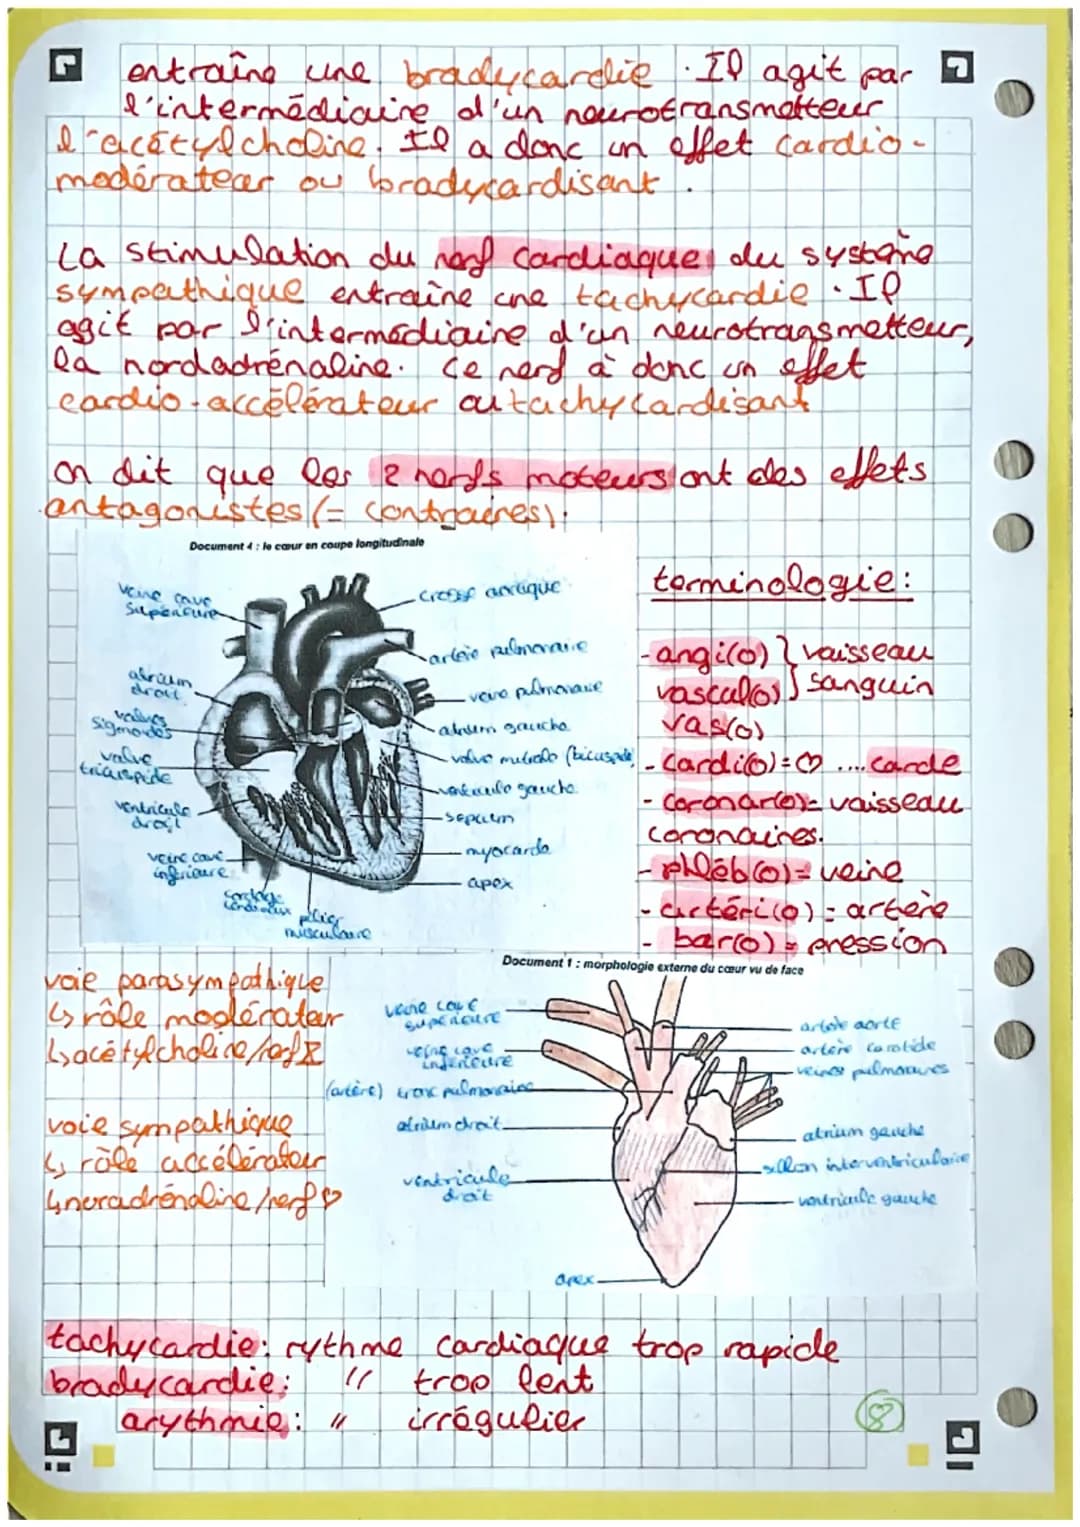 entraîne une bradycardie. Il agit par
l'intermédiaire d'un neurotransmetteur
l'acétylcholine. Il a donc un effet cardio-
modérateur ou bradycardisant.
La stimulation du nerf cardiaque du système
sympathique entraîne une tachycardie. Il
agit par l'intermédiaire d'un neurotransmetteur,
la nordadrénaline. Ce nerf à donc un effet
cardio-accélérateur ou tachycardisant
On dit que les 2 nerfs moteurs ont des effets
antagonistes (= contraires).
Document 4 : le cœur en coupe longitudinale
veine cave
supérieure
atrium
droit
valves
sigmoïdes
valve
tricuspide
ventricule
droit
veine cave
inférieure
cordage
tendineux
pilier
musculaire
crosse aortique
artère pulmonaire
veine pulmonaire
atrium gauche
valve mitrale (bicuspide)
ventricule gauche
septum
myocarde
apex
terminologie :
- angi(o) } vaisseau
vascul(o) } sanguin
vas(o)
- cardi(o) = ♡ .... carde
- coronar(o) = vaisseau
coronaires.
- phléb(o) = veine
- artéri(o) = artère
- bar(o) = pression
voie parasympathique
↳ rôle modérateur
↳ acétylcholine/nerf X
voie sympathique
↳ rôle accélérateur
↳ noradrénaline/nerf ♡
Document 1 : morphologie externe du cœur vu de face
veine cave
supérieure
veine cave
inférieure
(artère) tronc pulmonaire
atrium droit
ventricule
droit
apex
artère aorte
artère carotide
veines pulmonaires
atrium gauche
sillon interventriculaire
ventricule gauche
tachycardie: rythme cardiaque trop rapide
bradycardie: " trop lent
arythmie: " irrégulier
8